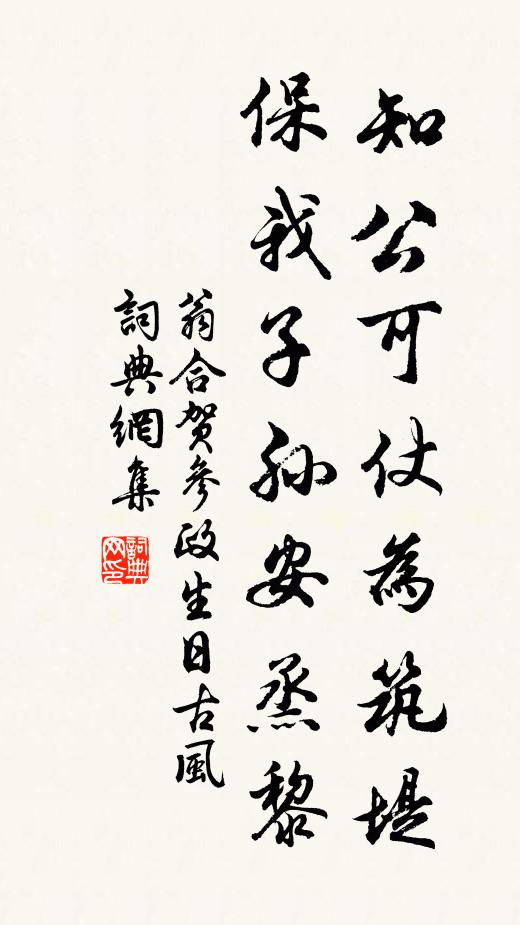 知公可仗為筑堤
保我子孙安烝黎
翁合贺參政生日古風
詞典網集
詞典網印